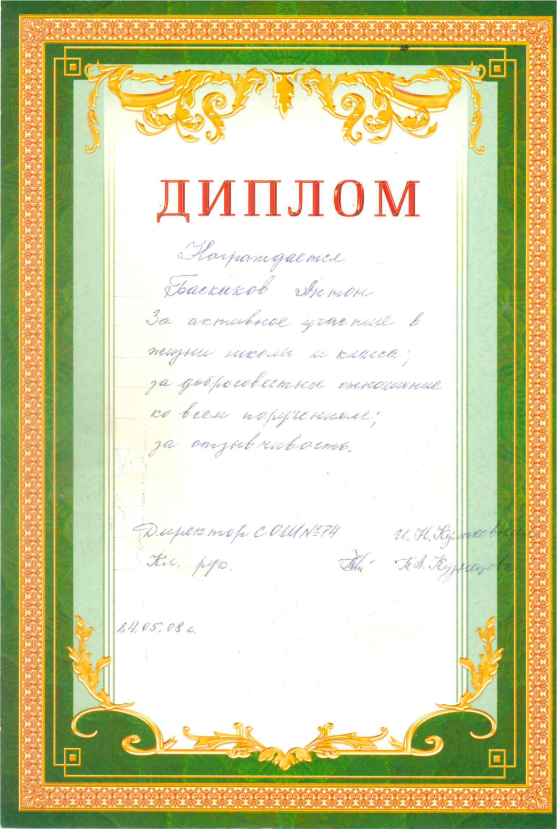 ДИПЛОМ
Награждается
Баскаков Антон
За активное участие в
жизни школы и класса;
за добросовестное отношение
ко всем поручениям;
за отзывчивость.
Директор СОШ №74 И.Н.
Кл. рук. Т.А. Кузнецова
24.05.08 г.